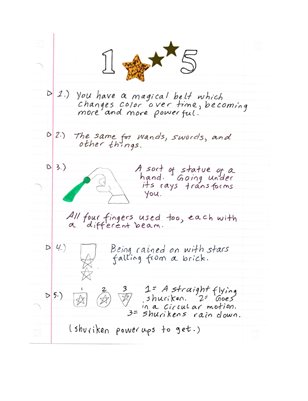 1 5
1.) You have a magical belt which
changes color over time, becoming
more and more powerful.
2.) The same for wands, swords, and
other things.
3.) A sort of statue of a
hand. Going under
its rays transforms
you.
All four fingers used too, each with
a different beam.
4.) Being rained on with stars
falling from a brick.
5.) 1 2 3 1= A straight flying
shuriken. 2= Goes
in a circular motion.
3= shurikens rain down.
(shuriken powerups to get.)